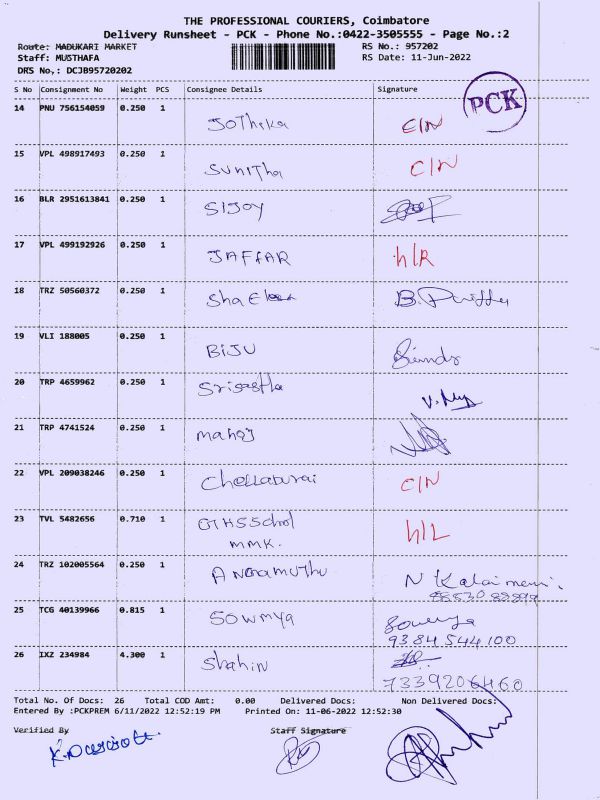 THE PROFESSIONAL COURIERS, Coimbatore
Delivery Runsheet - PCK - Phone No.:0422-3505555 - Page No.:2
Route: MADUKARI MARKET RS No.: 957202
Staff: MUSTHAFA RS Date: 11-Jun-2022
DRS No.: DCJB95720202
S No Consignment No Weight PCS Consignee Details Signature
PCK
14 PNU 756154059 0.250 1
Jothika C/N
15 VPL 498917493 0.250 1
Sunitha C/N
16 BLR 2951613841 0.250 1
SIJOY
17 VPL 499192926 0.250 1
JAFFAR h/R
18 TRZ 50560372 0.250 1
B.
19 VLI 188005 0.250 1
BIJU
20 TRP 4659962 0.250 1
21 TRP 4741524 0.250 1
manoj
22 VPL 209038246 0.250 1
C/N
23 TVL 5482656 0.710 1
h/L
MMK.
24 TRZ 102005564 0.250 1
N Kalaimani
25 TCG 40139966 0.815 1
Sowmya Sowmya
9384544100
26 IXZ 234984 4.300 1
Shahin
7339206460
Total No. Of Docs: 26 Total COD Amt: 0.00 Delivered Docs: Non Delivered Docs:
Entered By :PCKPREM 6/11/2022 12:52:19 PM Printed On: 11-06-2022 12:52:30
Verified By Staff Signature